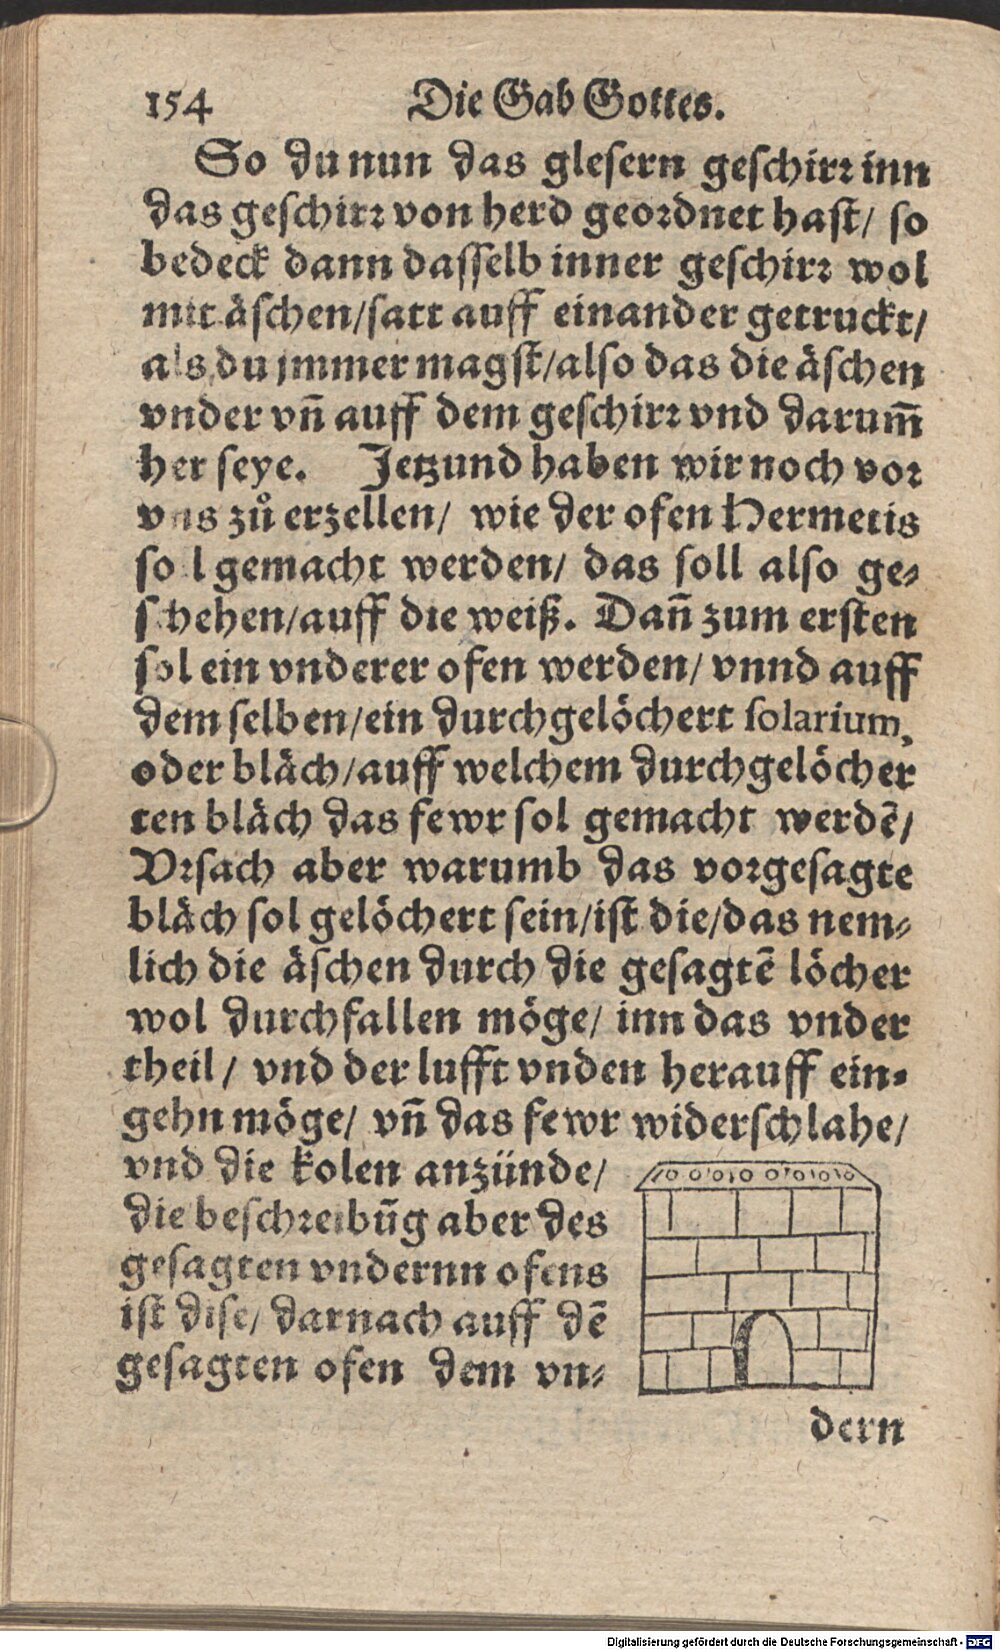 154 Die Gab Gottes.
So du nun das glesern geschirꝛ inn
das geschirꝛ von herd geoꝛdnet hast/ so
bedeck dann dasselb inner geschirꝛ wol
mit äschen/satt auff einander getruckt/
als du jmmer magst/also das die äschen
vnder vñ auff dem geschirꝛ vnd darum̄
her seye. Jetzund haben wir noch voꝛ
vns zů erzellen/ wie der ofen Hermetis
sol gemacht werden/ das soll also ge⸗
schehen/auff die weiß. Dañ zum ersten
sol ein vnderer ofen werden/ vnnd auff
dem selben/ein durchgelöchert solarium,
oder bläch/auff welchem durchgelöcher
ten bläch das fewr sol gemacht werdē/
Vꝛsach aber warumb das voꝛgesagte
bläch sol gelöchert sein/ist die/das nem⸗
lich die äschen durch die gesagtē löcher
wol durchfallen möge/ inn das vnder
theil/ vnd der lufft vnden herauff ein⸗
gehn möge/ vñ das fewr widerschlahe/
vnd die kolen anzünde/
die beschꝛeibūg aber des
gesagten vndernn ofens
ist dise/ darnach auff dē
gesagten ofen dem vn⸗
dern
Digitalisierung gefördert durch die Deutsche Forschungsgemeinschaft - DFG